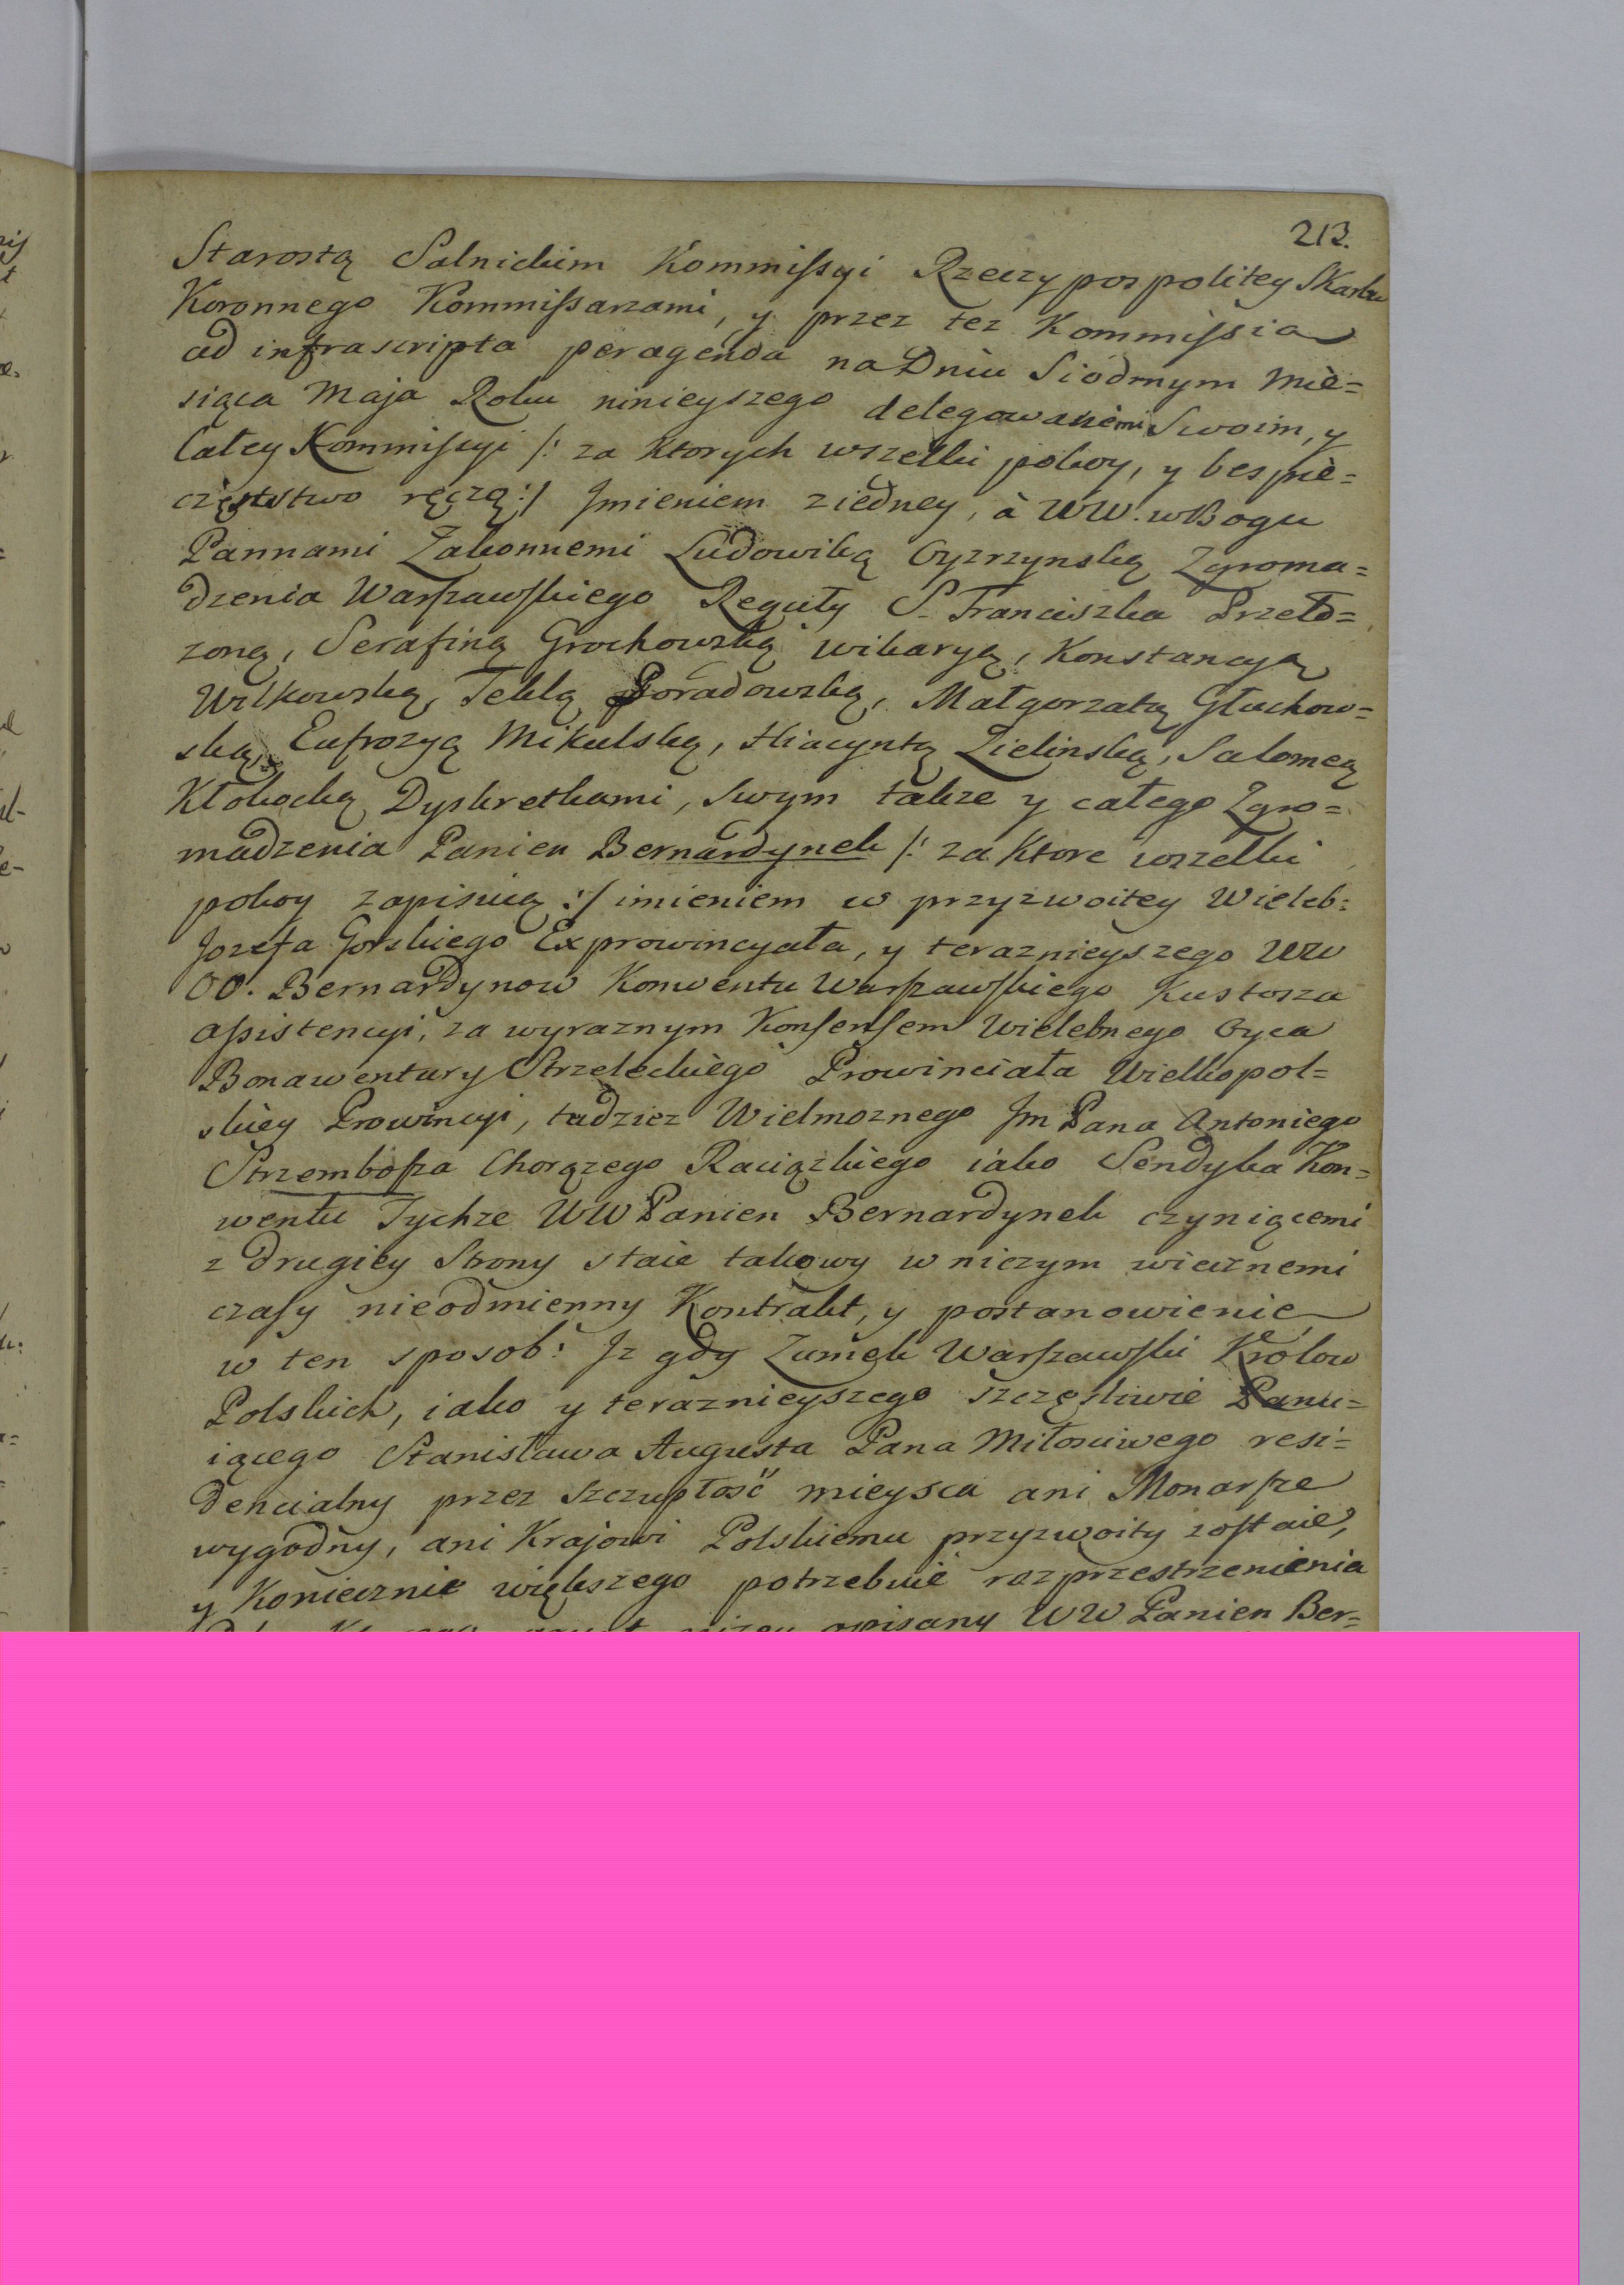 213.
Starostą Salnickim Kommissyi Rzeczypospolitey Skarbu
Koronnego Kommissarzami, y przez tez Kommissia
ad infrascripta peragenda na Dniu Siódmym Mie=
siąca Maja Roku ninieyszego delegowanemi Swoim, y
Całey Kommissyi /: za ktorych wszelki pokoy, y bespie=
częstwo ręczą :/ Jmieniem ziedney, à WW. w Bogu
Pannami Zakonnemi Ludowiką Cyzrzynską Zgroma=
dzenia Warszawskiego Reguły S. Franciszka Przeło=
zoną, Serafiną Grochowską wikaryą, Konstancyą
Wilkowską, Teklą Poradowską, Małgorzatą Głuchow=
ską, Eufrozyą Mikulską, Hiacyntą Zielinską, Salomeą
Kłokocką Dyskretkami, swym takze y całego Zgro=
madzenia Panien Bernardynek /: za ktore wszelki
pokoy zapisuią :/ imieniem w przyzwoitey Wieleb:
Jozefa Gorskiego Exprowincyała, y teraznieyszego WW
OO. Bernardynow Konwentu Warszawskiego Kustosza
assistencyi, za wyraznym Konsensem Wielebnego Oyca
Bonawentury Strzeleckiego Prowinciała Wielkopol=
skiey Prowincyi, tudziez Wielmoznego Jm Pana Antoniego
Strzembosza Chorązego Raciązkiego iako Sendyka Kon=
wentu Tychze WW Panien Bernardynek czyniącemi
z drugiey Strony staie takowy w niczym wiecznemi
czasy nieodmienny Kontrakt, y postanowienie
w ten sposob: Jz gdy Zamek Warszawski Królow
Polskich, iako y teraznieyszego szczęsliwie Panu=
iącego Stanisława Augusta Pana Miłosciwego resi=
dencialny przez szczupłość mieysca ani Monarsze
wygodny, ani Krajowi Polskiemu przyzwoity zostaie,
y Koniecznie większego potrzebuie rozprzestrzenienia
opisany WW Panien Ber=